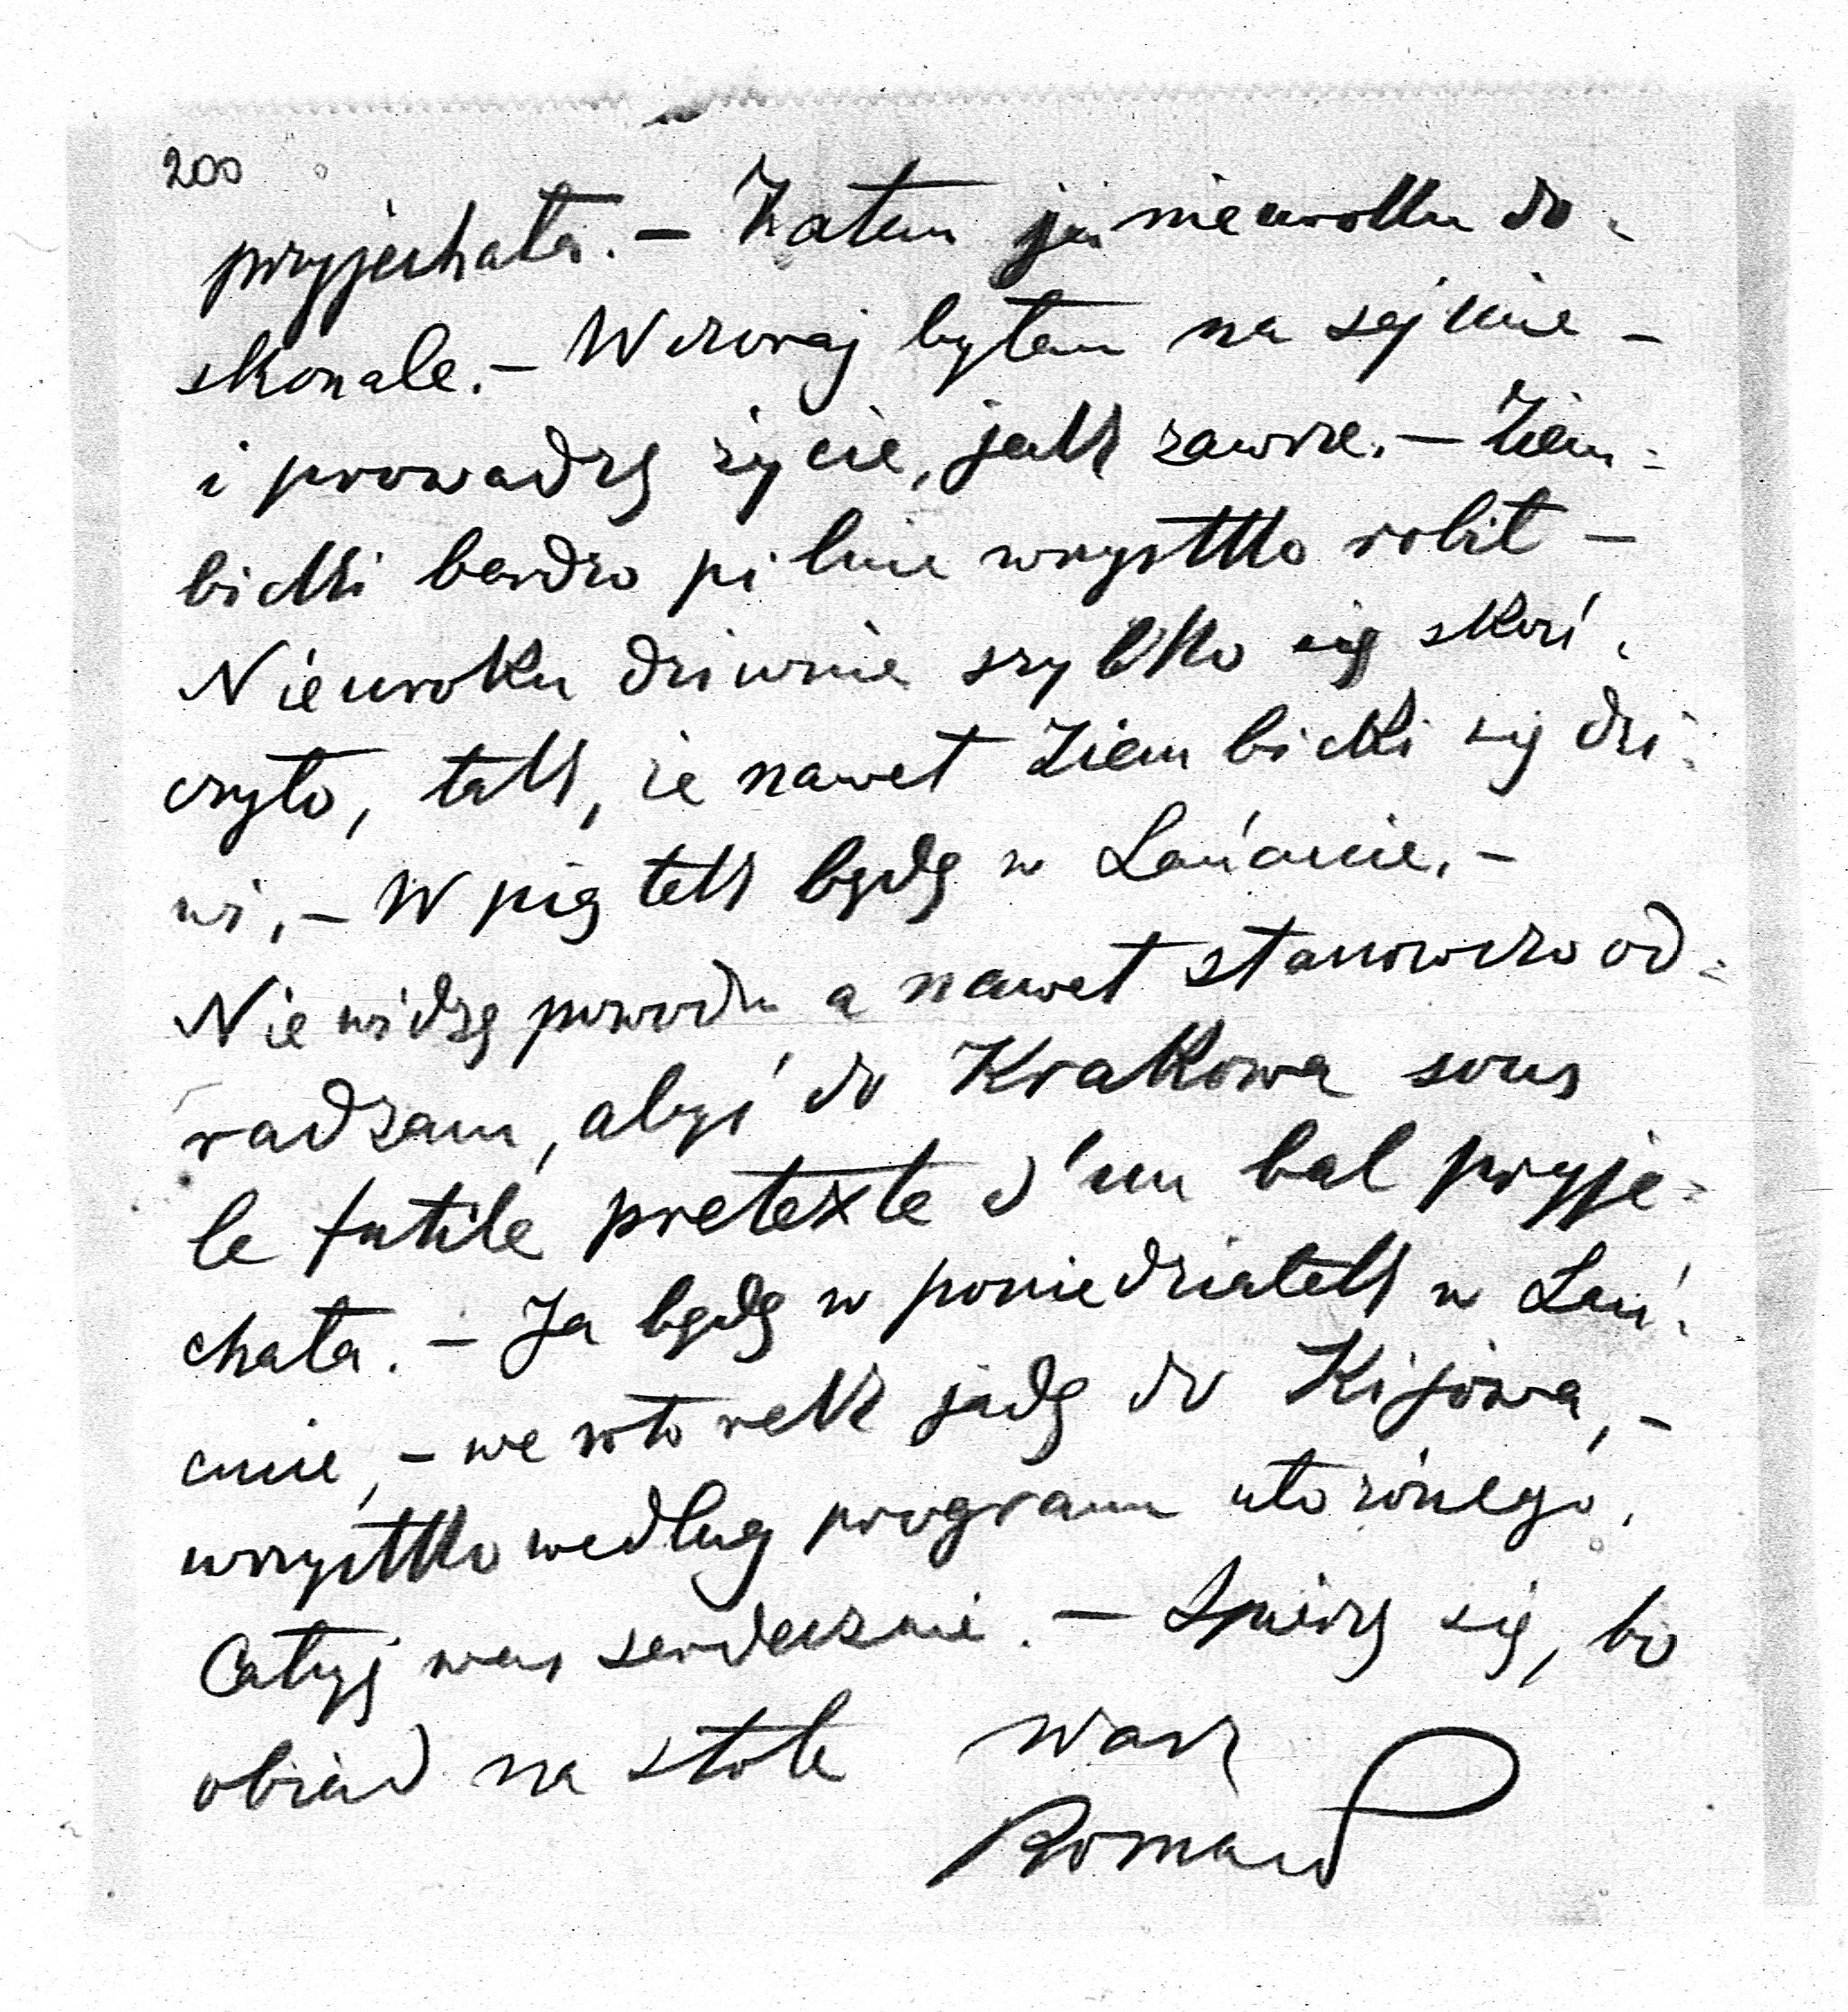 200
przyjechała. — Zatem ja nieuroku do-
skonale. — Wczoraj byłem na sejmie —
i prowadzę życie, jak zawsze. — Ziem=
bicki bardzo pilnie wszystko robił —
Nieuroku dziwnie szybko się skoń-
czyło, tak, że nawet Ziembicki się dzi-
wi, — W piątek będę w Łańcucie. —
Nie widzę powodu a nawet stanowczo od=
radzam, abyś do Krakowa sous
le futile pretexte d'un bal przyje=
chała. — Ja będę w poniedziałek w Łań-
cucie, — we wtorek jadę do Kijowa, —
wszystko według programu ułożónego.
Całuję was serdecznie. — Spieszę się, bo
obiad na stole wasz
Roman